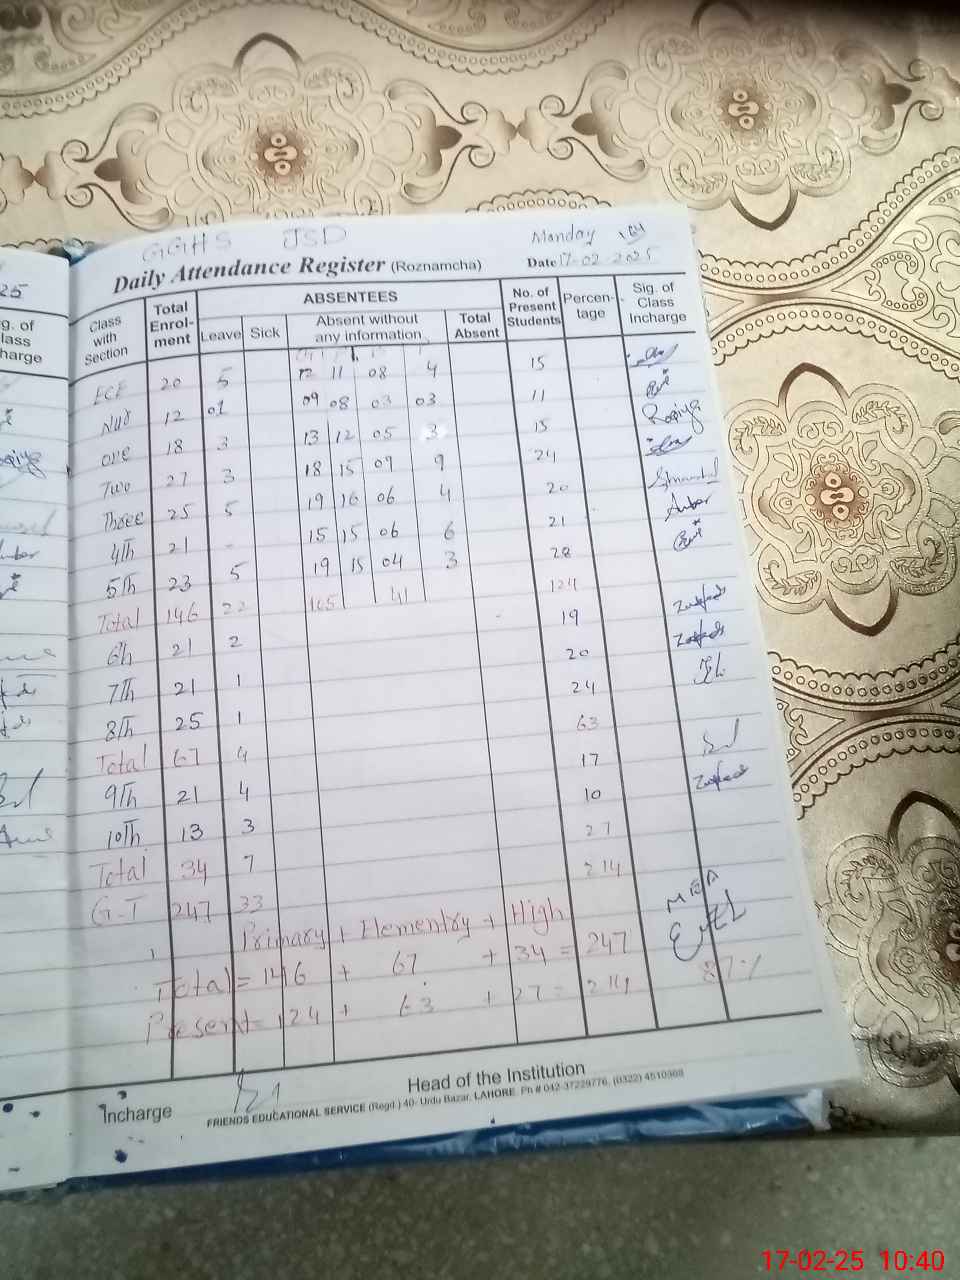 GGHS JSD
Monday
Daily Attendance Register (Roznamcha)
Date 17-02 2025
Class with Section
Total Enrol- ment
ABSENTEES
Leave
Sick
Absent without any information
Total Absent
No. of Present Students
Percen- tage
Sig. of Class Incharge
ECE 20 5 12 11 08 4 15
Nur 12 01 09 08 03 03 11
one 18 3 13 12 05 3 15 Raqiya
Two 27 3 18 15 09 9 24
Three 25 5 19 16 06 4 20
4th 21 - 15 15 06 6 21 Amber
5th 23 5 19 15 04 3
Total 146 22 105 41 124
6th 21 2 19
7th 21 1 20
8th 25 1 24
Total 67 4 63
9th 21 4 17
10th 13 3 10
Total 34 7 27
G.T 247 33 214
Primary + Elementry + High
Total = 146 + 67 + 34 = 247
Present = 124 + 63 + 27 = 214 87%
MEA
Head of the Institution
Incharge
FRIENDS EDUCATIONAL SERVICE (Regd.) 40- Urdu Bazar, LAHORE. Ph # 042-37229776, (0322) 4510368
25
g. of
lass
harge
17-02-25 10:40